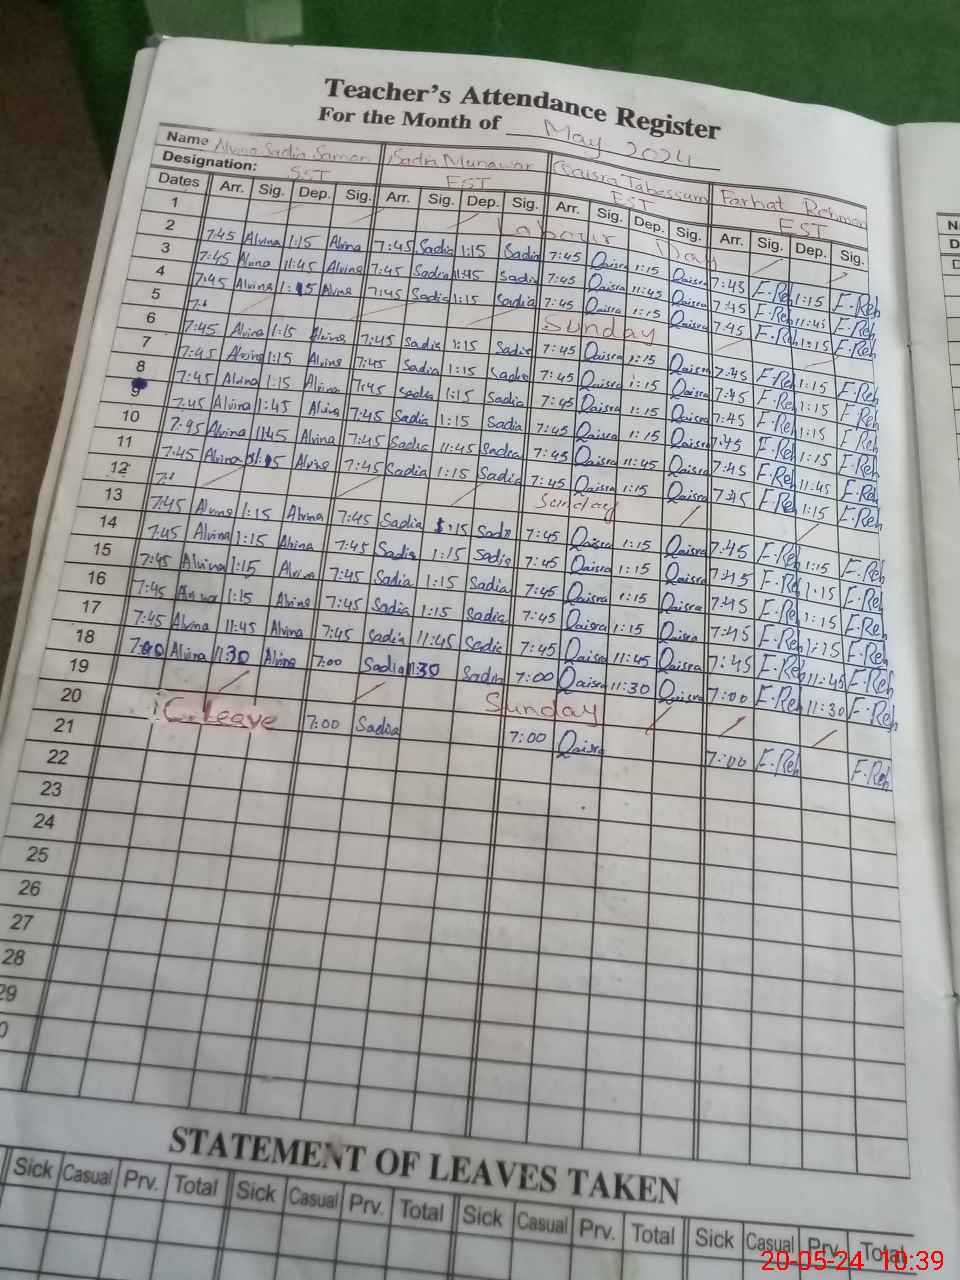 Teacher's Attendance Register
For the Month of May 2024
Name Alvina Sadia Saman Sadia Munawar Qaisra Tabessum Farhat Rehman
Designation: SST EST EST EST
Dates Arr. Sig. Dep. Sig. Arr. Sig. Dep. Sig. Arr. Sig. Dep. Sig. Arr. Sig. Dep. Sig.
1 Labour Day
2 7:45 Alvina 1:15 Alvina 7:45 Sadia 1:15 Sadia 7:45 Qaisra 1:15 Qaisra 7:45 F.Reh 1:15 F.Reh
3 7:45 Alvina 11:45 Alvina 7:45 Sadia 11:45 Sadia 7:45 Qaisra 11:45 Qaisra 7:45 F.Reh 11:45 F.Reh
4 7:45 Alvina 1:15 Alvina 7:45 Sadia 1:15 Sadia 7:45 Qaisra 1:15 Qaisra 7:45 F.Reh 1:15 F.Reh
5 Sunday
6 7:45 Alvina 1:15 Alvina 7:45 Sadia 1:15 Sadia 7:45 Qaisra 1:15 Qaisra 7:45 F.Reh 1:15 F.Reh
7 7:45 Alvina 1:15 Alvina 7:45 Sadia 1:15 Sadia 7:45 Qaisra 1:15 Qaisra 7:45 F.Reh 1:15 F.Reh
8 7:45 Alvina 1:15 Alvina 7:45 Sadia 1:15 Sadia 7:45 Qaisra 1:15 Qaisra 7:45 F.Reh 1:15 F.Reh
9 7:45 Alvina 1:45 Alvina 7:45 Sadia 1:15 Sadia 7:45 Qaisra 1:15 Qaisra 7:45 F.Reh 1:15 F.Reh
10 7:45 Alvina 11:45 Alvina 7:45 Sadia 11:45 Sadia 7:45 Qaisra 11:45 Qaisra 7:45 F.Reh 11:45 F.Reh
11 7:45 Alvina 1:15 Alvina 7:45 Sadia 1:15 Sadia 7:45 Qaisra 1:15 Qaisra 7:45 F.Reh 1:15 F.Reh
12 Sunday
13 7:45 Alvina 1:15 Alvina 7:45 Sadia 1:15 Sadia 7:45 Qaisra 1:15 Qaisra 7:45 F.Reh 1:15 F.Reh
14 7:45 Alvina 1:15 Alvina 7:45 Sadia 1:15 Sadia 7:45 Qaisra 1:15 Qaisra 7:45 F.Reh 1:15 F.Reh
15 7:45 Alvina 1:15 Alvina 7:45 Sadia 1:15 Sadia 7:45 Qaisra 1:15 Qaisra 7:45 F.Reh 1:15 F.Reh
16 7:45 Alvina 1:15 Alvina 7:45 Sadia 1:15 Sadia 7:45 Qaisra 1:15 Qaisra 7:45 F.Reh 1:15 F.Reh
17 7:45 Alvina 11:45 Alvina 7:45 Sadia 11:45 Sadia 7:45 Qaisra 11:45 Qaisra 7:45 F.Reh 11:45 F.Reh
18 7:00 Alvina 11:30 Alvina 7:00 Sadia 11:30 Sadia 7:00 Qaisra 11:30 Qaisra 7:00 F.Reh 11:30 F.Reh
19 Sunday
20 C.Leave 7:00 Sadia 7:00 Qaisra 7:00 F.Reh F.Reh
21
22
23
24
25
26
27
28
29
0
STATEMENT OF LEAVES TAKEN
Sick Casual Prv. Total Sick Casual Prv. Total Sick Casual Prv. Total Sick Casual Prv. Total
20-05-24 10:39